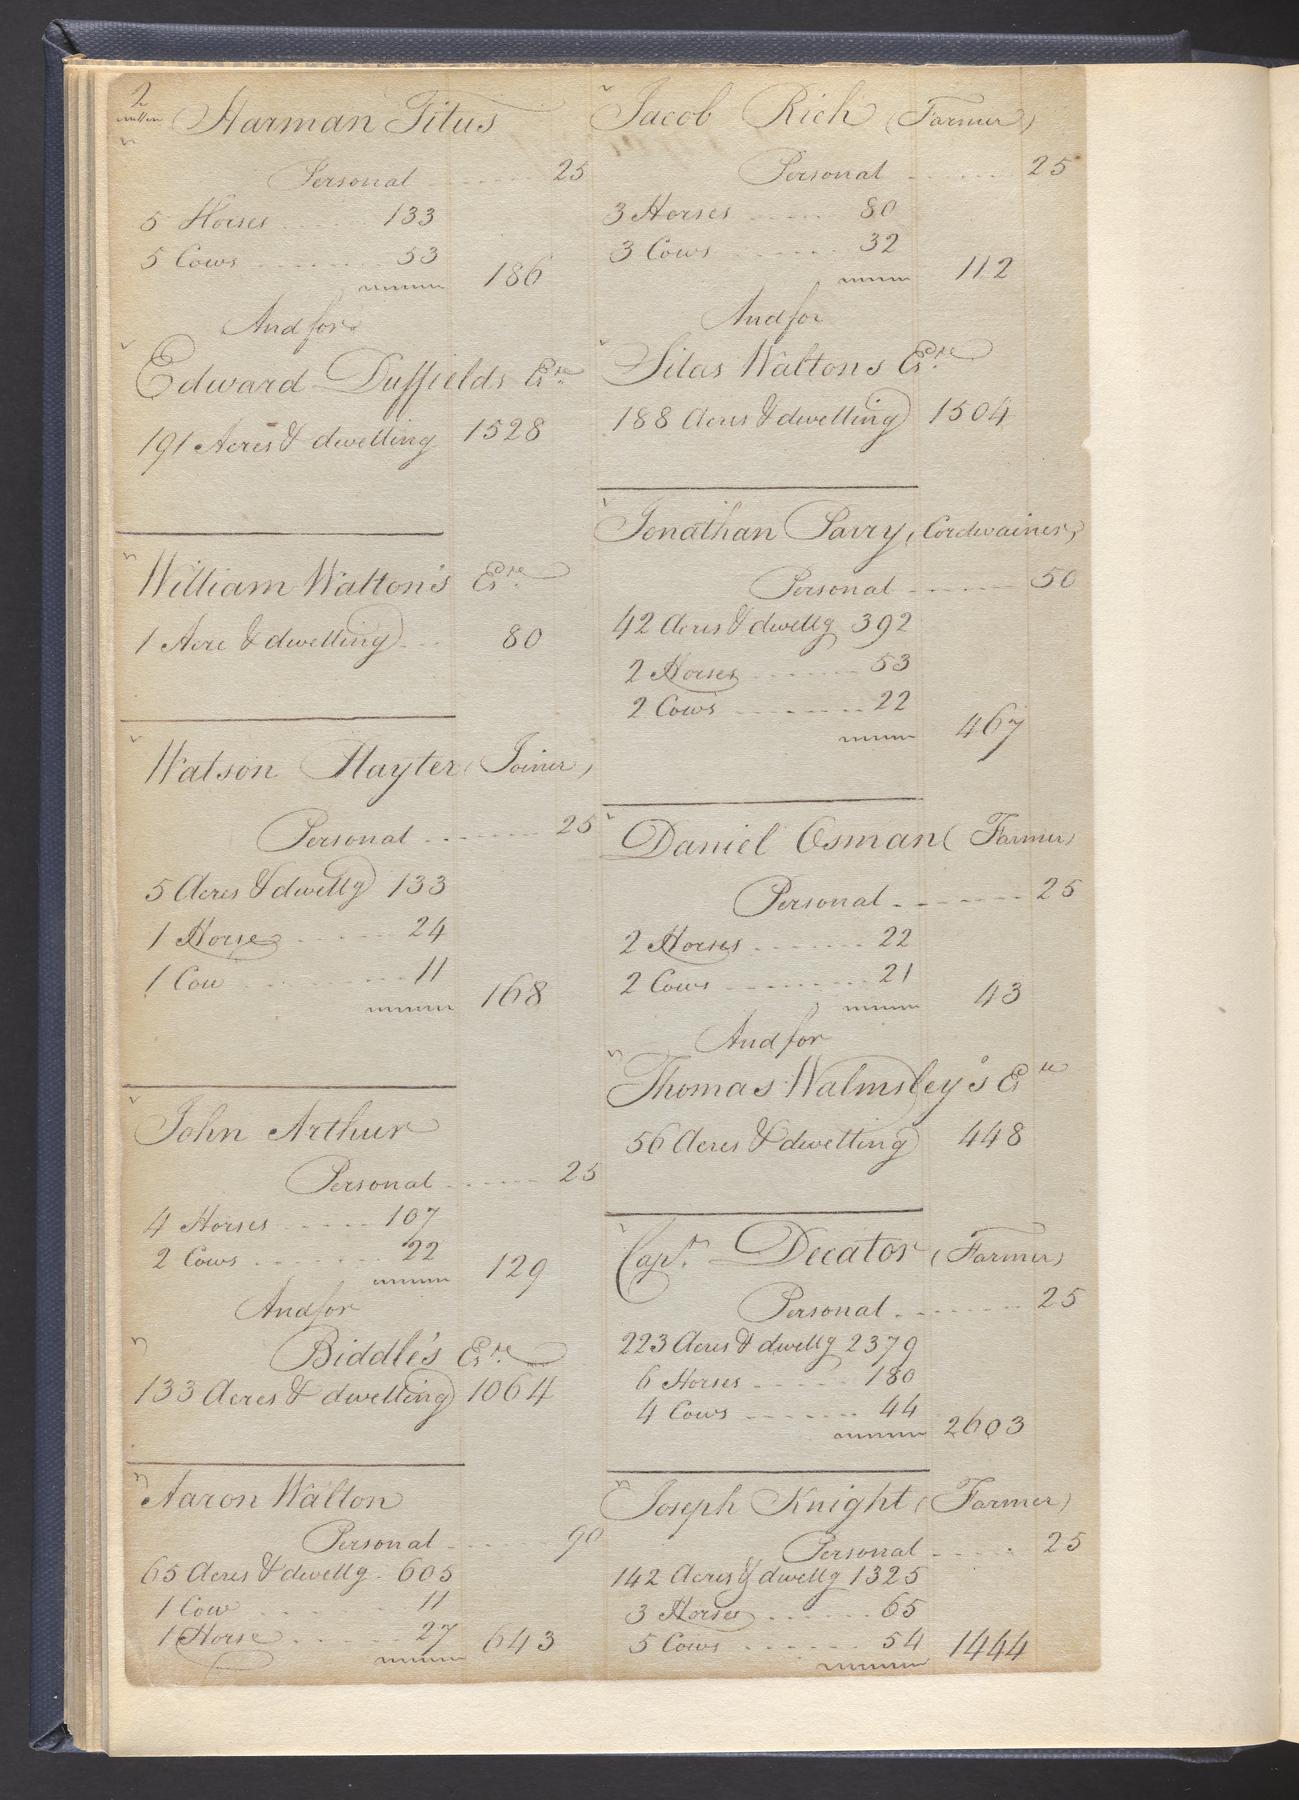 2
Harman Titus
Personal ........ 25
5 Horses ..... 133
5 Cows ........ 53
186
And for
Edward Duffields Es.te
191 Acres & dwelling 1528
William Walton's Es.te
1 Acre & dwelling ... 80
Watson Hayter (Joiner)
Personal ......... 25
5 Acres & dwellg 133
1 Horse ...... 24
1 Cow ......... 11
168
John Arthur
Personal ...... 25
4 Horses ..... 107
2 Cows ....... 22
129
And for
Biddle's Es.te
133 Acres & dwelling 1064
Aaron Walton
Personal ...... 90
65 Acres & dwellg. 605
1 Cow ....... 11
1 Horse ...... 27 643
Jacob Rich (Farmer)
Personal ....... 25
3 Horses ..... 80
3 Cows ...... 32
112
And for
Silas Waltons Es.te
188 Acres & dwelling 1504
Jonathan Parry, (Cordwainer)
Personal ...... 50
42 Acres & dwellg 392
2 Horses ...... 53
2 Cows ....... 22
467
Daniel Osman (Farmer)
Personal ....... 25
2 Horses ....... 22
2 Cows ......... 21
43
And for
Thomas Walmsley's Es te
56 Acres & dwelling 448
Cap.t Decator (Farmer)
Personal ....... 25
223 Acres & dwellg 2379
6 Horses ..... 180
4 Cows ....... 44
2603
Joseph Knight (Farmer)
Personal .... 25
142 Acres & dwellg 1325
3 Horses ...... 65
5 Cows ...... 54 1444